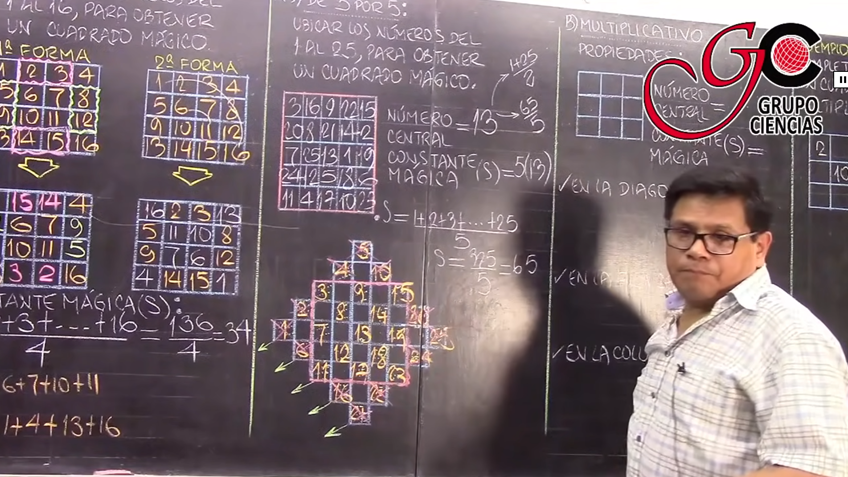 1 AL 16, PARA OBTENER
UN CUADRADO MÁGICO.
1ª FORMA
1 2 3 4
5 6 7 8
9 10 11 12
3 14 15 16
15 14 4
6 7 9
10 11 5
3 2 16
2ª FORMA
1 2 3 4
5 6 7 8
9 10 11 12
13 14 15 16
16 2 3 13
5 11 10 8
9 7 6 12
4 14 15 1
TANTE MÁGICA(S):
+3+...+16 = 136 = 34
4 4
6+7+10+11
1+4+13+16
DE 5 POR 5:
UBICAR LOS NÚMEROS DEL
1 AL 25, PARA OBTENER
UN CUADRADO MÁGICO.
3 16 9 22 15
20 8 21 14 2
7 25 13 1 19
24 12 5 18 6
11 4 17 10 23
NÚMERO = 13
CENTRAL
1+25
2
65
5
CONSTANTE
MÁGICA (S) = 5(13)
S = 1+2+3+...+25
5
S = 325 = 65
5
5
4 10
3 9 15
2 8 14
1 7 13 19
6 12 18
11 17 23
B) MULTIPLICATIVO
PROPIEDADES:
NÚMERO
CENTRAL =
CONSTANTE (S) =
MÁGICA
✓ EN LA DIAGO
✓ EN
✓ EN LA COLU
2
10
GC
GRUPO
CIENCIAS